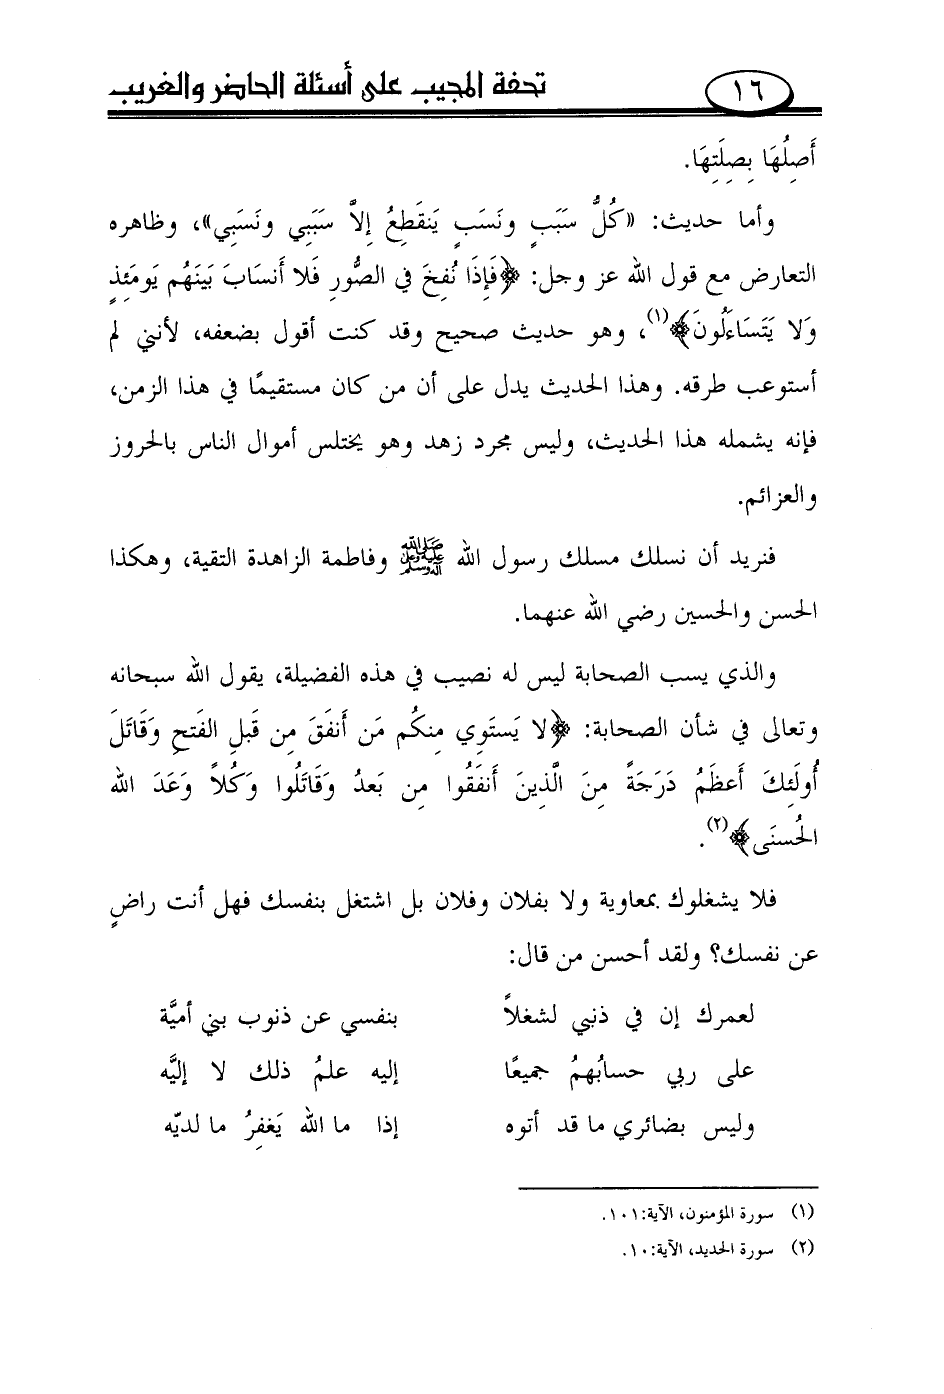 ١٦ تحفة المجيب على أسئلة الحاضر والغريب
أَصِلُهَا بِصِلَتِهَا.
وأما حديث: «كُلُّ سَبَبٍ ونَسَبٍ يَنقَطِعُ إِلاَّ سَبَبِي ونَسَبِي»، وظاهره
التعارض مع قول الله عز وجل: ﴿فَإِذَا نُفِخَ فِي الصُّورِ فَلا أَنسَابَ بَيْنَهُم يَومَئِذٍ
وَلا يَتَسَاءَلُونَ﴾(١)، وهو حديث صحيح وقد كنت أقول بضعفه، لأنني لم
أستوعب طرقه. وهذا الحديث يدل على أن من كان مستقيمًا في هذا الزمن،
فإنه يشمله هذا الحديث، وليس مجرد زهد وهو يختلس أموال الناس بالحروز
والعزائم.
فنريد أن نسلك مسلك رسول الله ﷺ وفاطمة الزاهدة التقية، وهكذا
الحسن والحسين رضي الله عنهما.
والذي يسب الصحابة ليس له نصيب في هذه الفضيلة، يقول الله سبحانه
وتعالى في شأن الصحابة: ﴿لا يَستَوِي مِنكُم مَن أَنفَقَ مِن قَبلِ الفَتحِ وَقَاتَلَ
أُولَئِكَ أَعظَمُ دَرَجَةً مِنَ الَّذِينَ أَنفَقُوا مِن بَعدُ وَقَاتَلُوا وَكُلاً وَعَدَ الله
الحُسنَى﴾(٢).
فلا يشغلوك بمعاوية ولا بفلان وفلان بل اشتغل بنفسك فهل أنت راضٍ
عن نفسك؟ ولقد أحسن من قال:
لعمرك إن في ذنبي لشغلاً بنفسي عن ذنوب بني أميَّة
على ربي حسابُهمُ جميعًا إليه علمُ ذلك لا إليَّه
وليس بضائري ما قد أتوه إذا ما الله يَغفِرُ ما لديّه
(١) سورة المؤمنون، الآية:١٠١.
(٢) سورة الحديد، الآية:١٠.